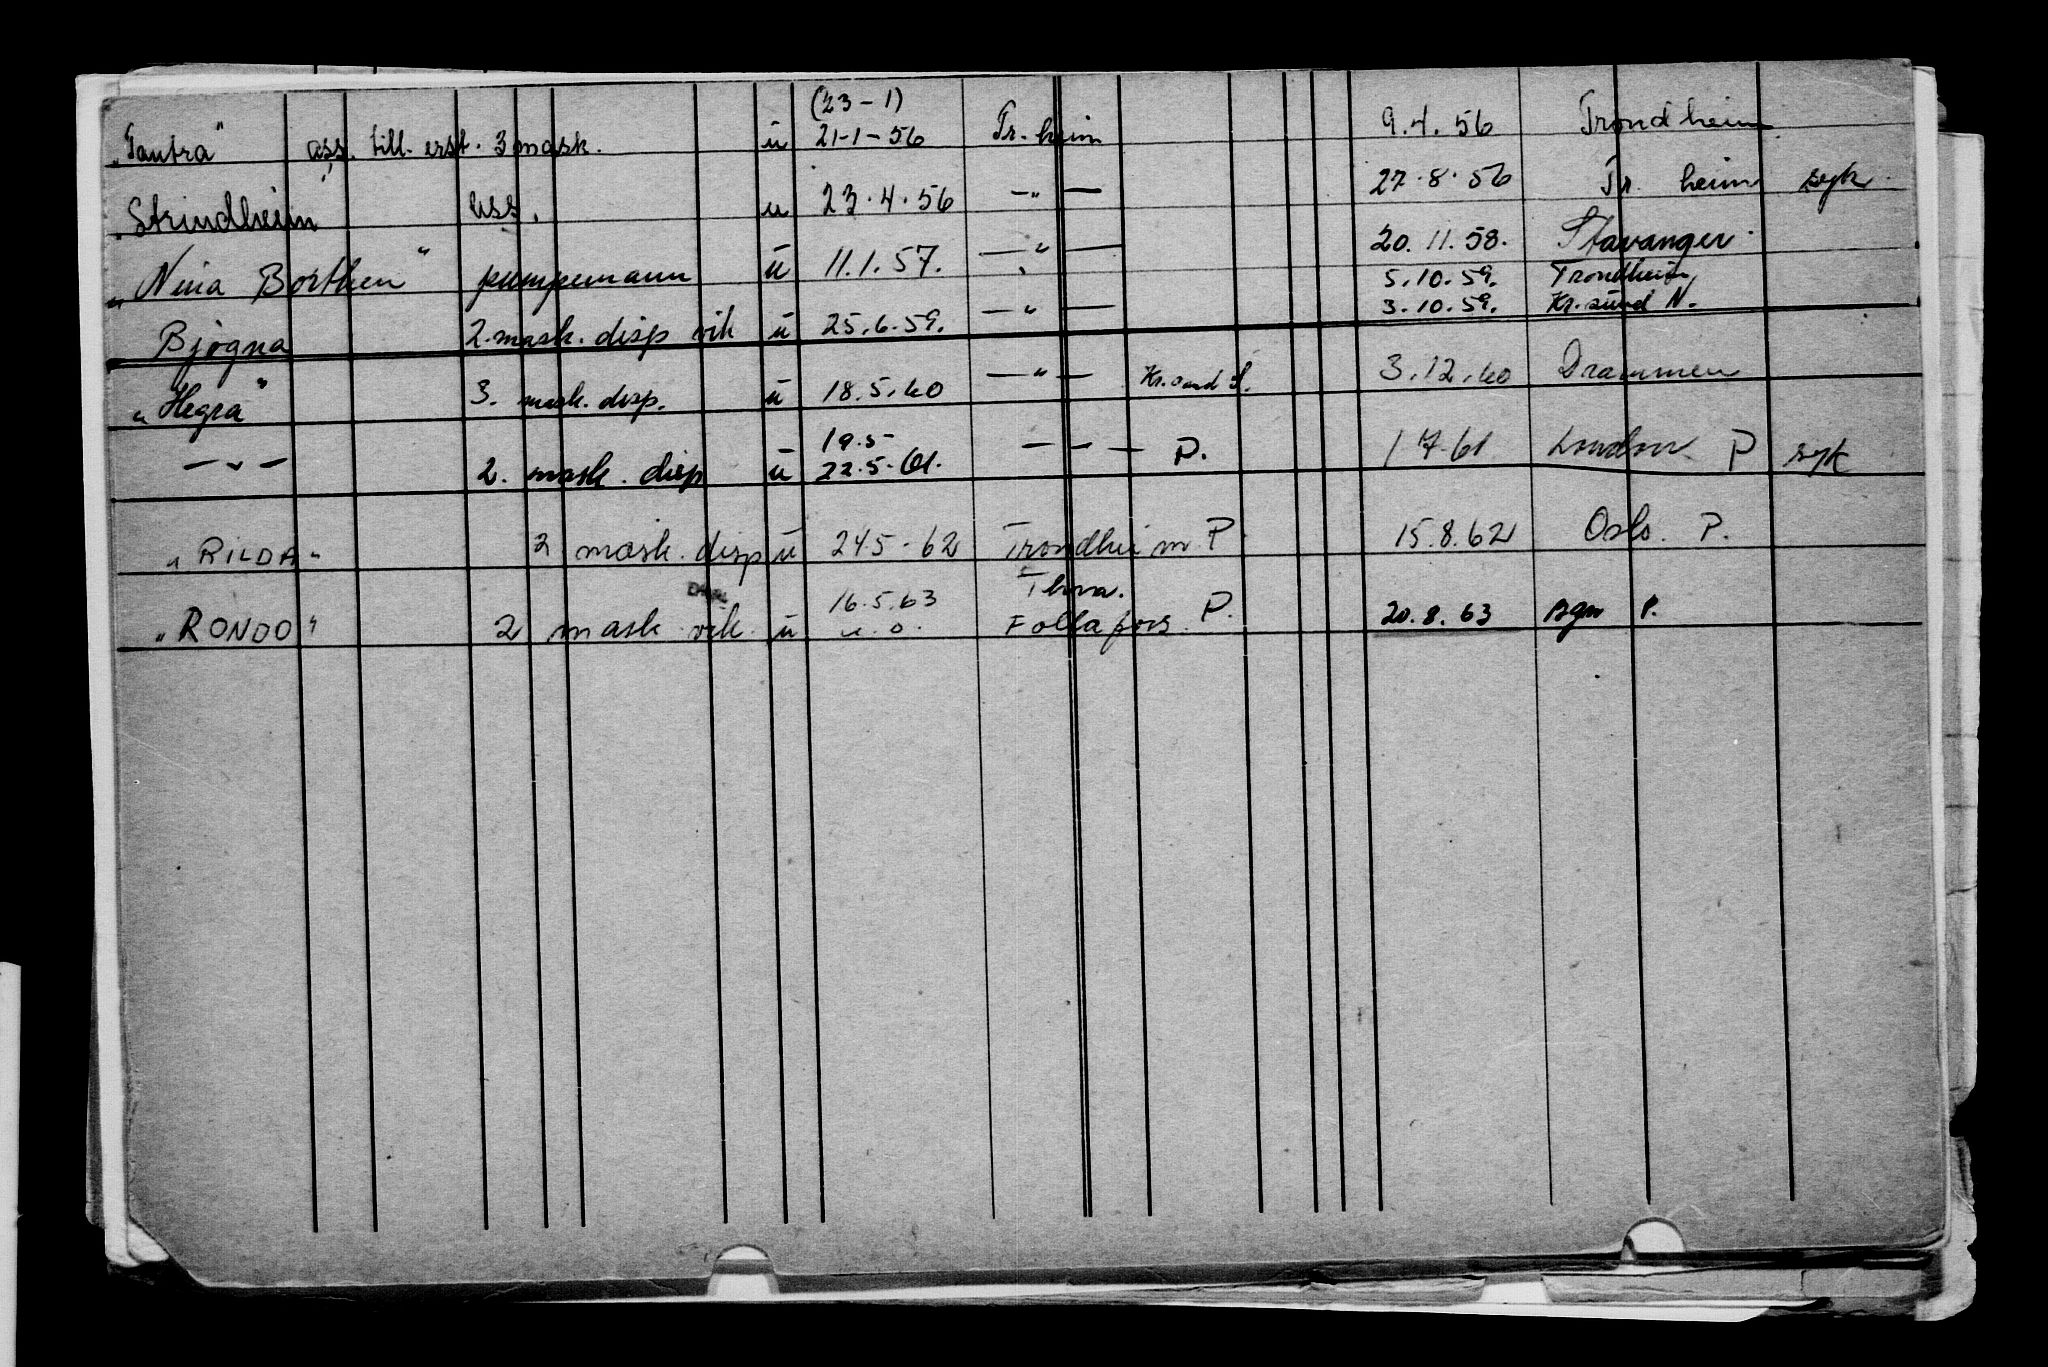 (23-1)
„Tautra" ass. till. erst. 3 mask. u 21-1-56 Tr.heim 9.4.56 Trondheim.
„Strindheim ass. u 23.4.56 —"— 27.8.56 Tr. heim syk.
„Nina Borthen" pumpemann u 11.1.57. —"— 20.11.58. Stavanger.
5.10.59. Trondheim
„Bjøgna 2.mask. disp vik u 25.6.59. —"— 3.10.59. Kr.sund N.
„Hegra" 3. mask. disp. u 18.5.60 —"— Kr.sund S. 3.12.60 Drammen
19.5
—"— 2. mask. disp u 22.5.61. — - — P. 1 7-61 London P syk
„RILDA" 2 mask. disp u 245-62 Trondheim. P 15.8.62 Oslo. P.
16.5.63
„RONDO" 2 mask vik. u u.o. Follafoss. P. 20.8.63 Bgn P.